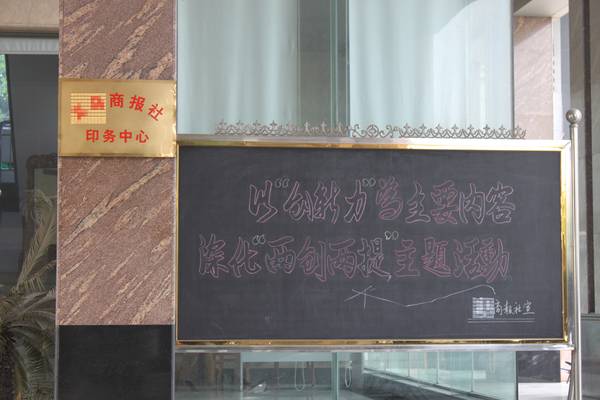 商报社
印务中心
以“创新力”为主要内容
深化“两创两提”主题活動
商報社宣